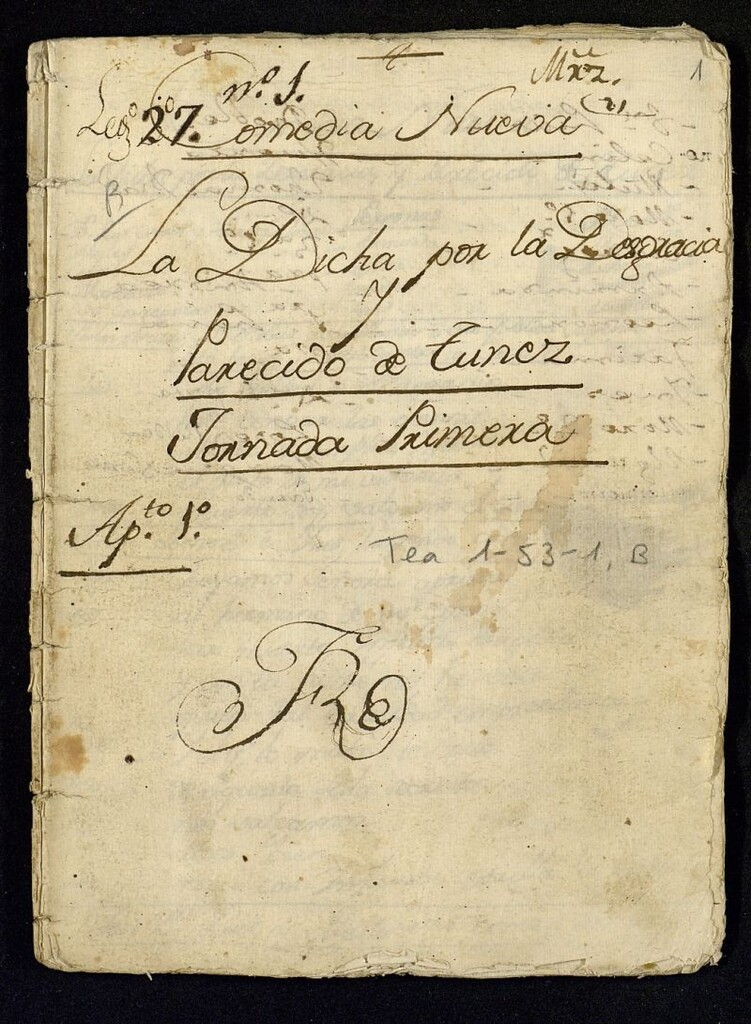 Mrz.
1
Leg.º 27. nº. 1.
Comedia Nueva
B
La Dicha por la Desgracia
y
Parecido de tunez
Jornada Primera
Ap.to 1.º
Tea 1-53-1, B